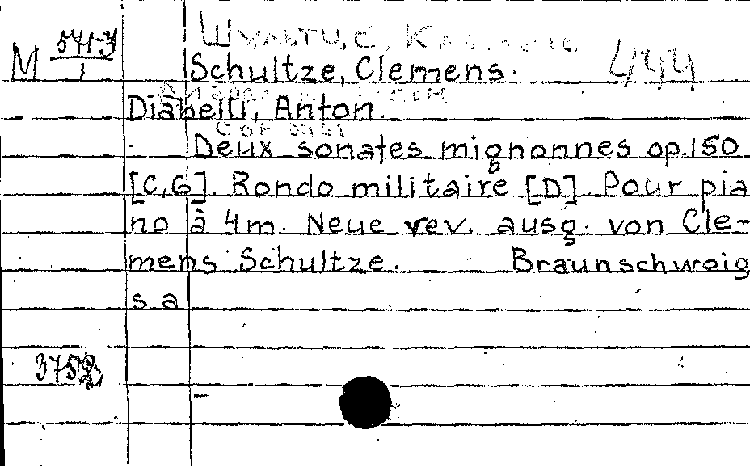 M
Schultze, Clemens. 444
Diabelli, Anton.
Deux sonates mignonnes op. 150
[C,G]. Rondo militaire [D]. Pour pia
no à 4m. Neue rev. ausg. von Cle-
mens Schultze. Braunschweig
s a